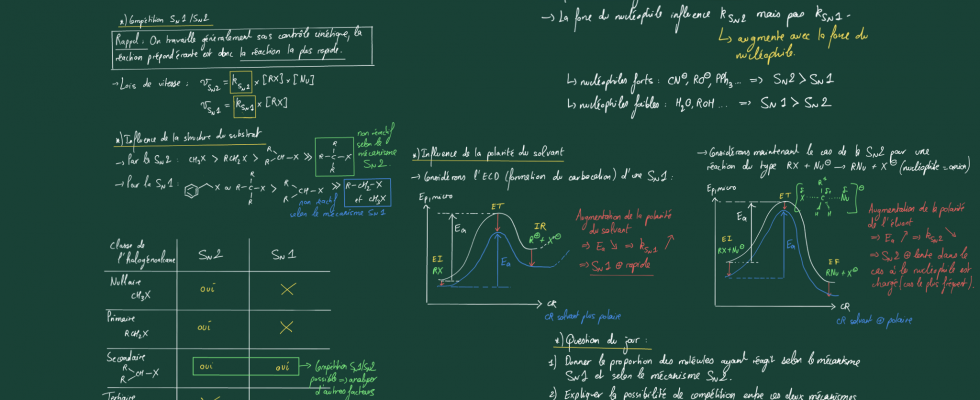 *) Compétition SN1/SN2
Rappel : On travaille généralement sous contrôle cinétique, la
réaction prépondérante est donc la réaction la plus rapide.
→ Lois de vitesse : vSN2 = kSN2 × [RX] × [Nu]
vSN1 = kSN1 × [RX]
*) Influence de la structure du substrat
→ Par la SN2 : CH3X > RCH2X > R R CH-X >> R R-C-X R
non réactif
selon le
mécanisme
SN2
→ Par la SN1 : X ou R-C-X > R R CH-X >> R-CH2-X
et CH3X
non réactif
selon le mécanisme SN1
Classe de
l'halogénoalcane
SN2
SN1
Nullaire
CH3X
oui
×
Primaire
RCH2X
oui
×
Secondaire
R R CH-X
oui
oui
Compétition SN1/SN2
possible ⇒ analyser
d'autres facteurs
Tertiaire
→ La force du nucléophile influence kSN2 mais pas kSN1.
↳ augmente avec la force du
nucléophile.
↳ nucléophiles forts : CN⊖, RO⊖, PPh3... ⇒ SN2 > SN1
↳ nucléophiles faibles : H2O, ROH ... ⇒ SN1 > SN2
*) Influence de la polarité du solvant
→ Considérons l'ECD (formation du carbocation) d'une SN1 :
Ep,micro
ET
IR
R⊕ + X⊖
Ea
Ea
EI
RX
CR
CR solvant plus polaire
Augmentation de la polarité
du solvant
⇒ Ea ↘ ⇒ kSN1 ↗
⇒ SN1 ⊕ rapide
→ Considérons maintenant le cas de la SN2 pour une
réaction du type RX + Nu⊖ → RNu + X⊖ (nucléophile = anion)
Ep,micro
ET
X C Nu
R
H H
⊖
Ea
Ea
EI
RX + Nu⊖
EF
RNu + X⊖
CR
CR solvant ⊕ polaire
Augmentation de la polarité
de l'éluant
⇒ Ea ↗ ⇒ kSN2 ↘
⇒ SN2 ⊕ lente dans le
cas où le nucléophile est
chargé (cas le plus fréquent).
*) Question du jour :
1) Donner la proportion des molécules ayant réagi selon le mécanisme
SN1 et selon le mécanisme SN2.
2) Expliquer la possibilité de compétition entre ces deux mécanismes